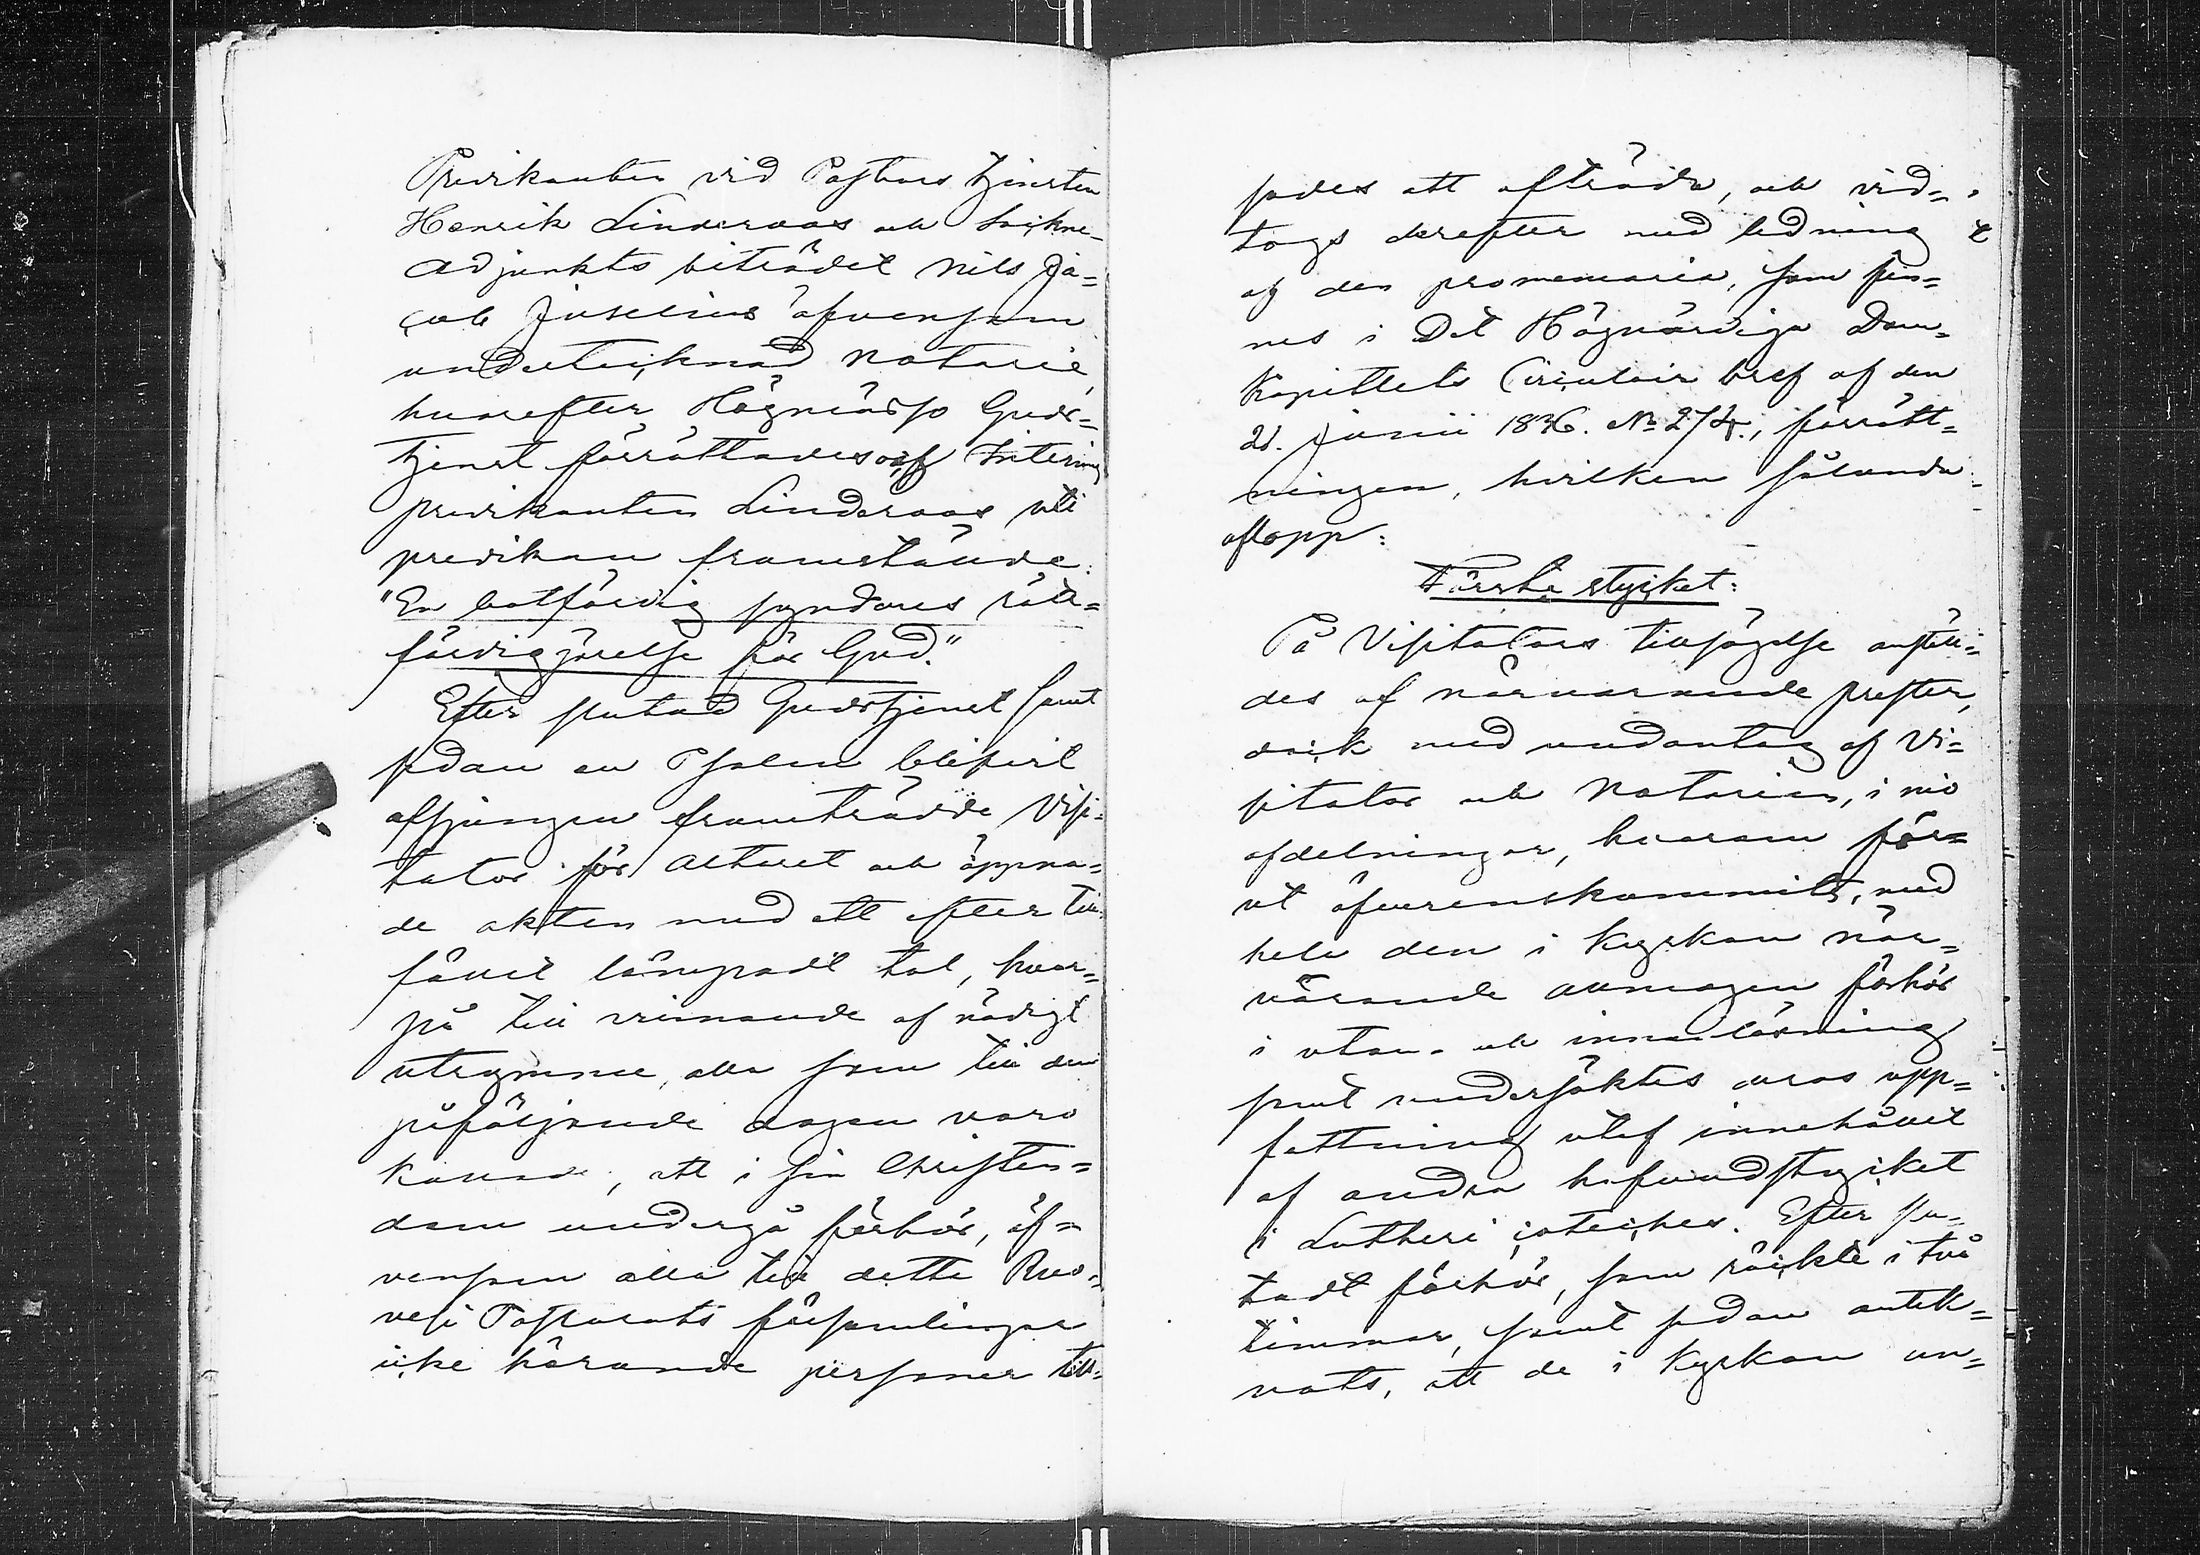 Predikanten vid Pastors tjensten
Henrik Linderoos och Sockne-
Adjunkts biträdet Nils Ja-
cob Juselius äfvensom
undertecknad Notarie,
hvarefter Högmässo Guds-
tjenst förrättades af Interims
predikanten Linderoos uti
predikan framstälde:
"En botfärdig syndares rätt-
färdiggörelse för Gud."
Efter slutad Gudstjenst samt
sedan en Psalm blifvit
afsjungen framträdde Visi-
tator för Altaret och öppna-
de akten med ett efter till-
fället lämpadt tal, hvar-
på till vinnande af nödigt
utrymme, alla som till den
påföljande dagen voro
kallade, att i sin Christen-
dom undergå förhör, äf-
vensom alla till detta Ruo-
vesi Pastorats församlingar
icke hörande personer till-
sades att afträda, och vid-
togs derefter med ledning
af den promemoria, som fin-
nes i Det Högvördiga Dom-
Kapitlets Circulair bref af den
21. Junii 1836. No 274., förrätt-
ningen, hvilken sålunda
aflopp:
Första stycket:
På Visitators tillsägelse anställ-
des af närvarande prester,
dock med undantag af Vi-
sitator och Notarien, i nio
afdelningar, hvarom för-
ut öfverenskommits, med
hela den i Kyrkan när-
värande allmogen förhör
i utan- och innanläsning
samt undersöktes deras upp-
fattning utaf innehållet
af andra hufvudstycket
i Lutheri cateches. Efter slu-
tadt förhör, som räckte i två
timmar, samt sedan anteck-
nats, att de i Kyrkan un-